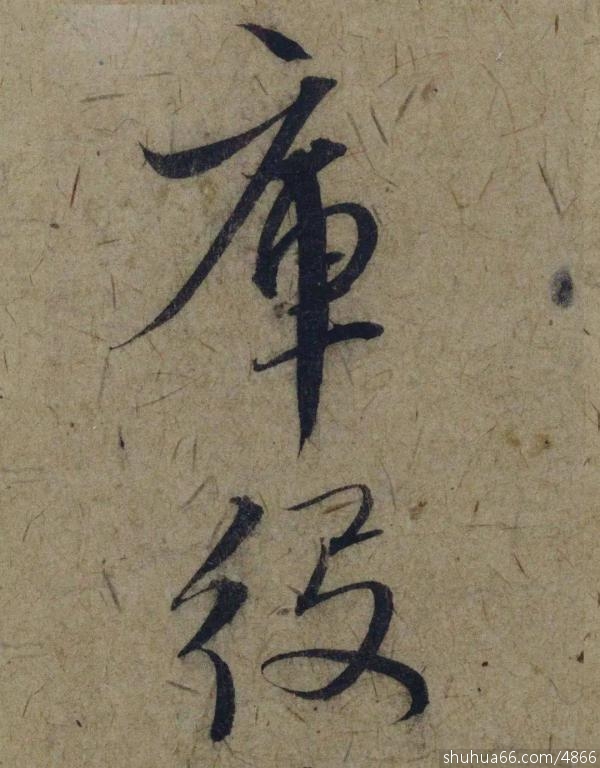 庫
役
shuhua66.com/4866